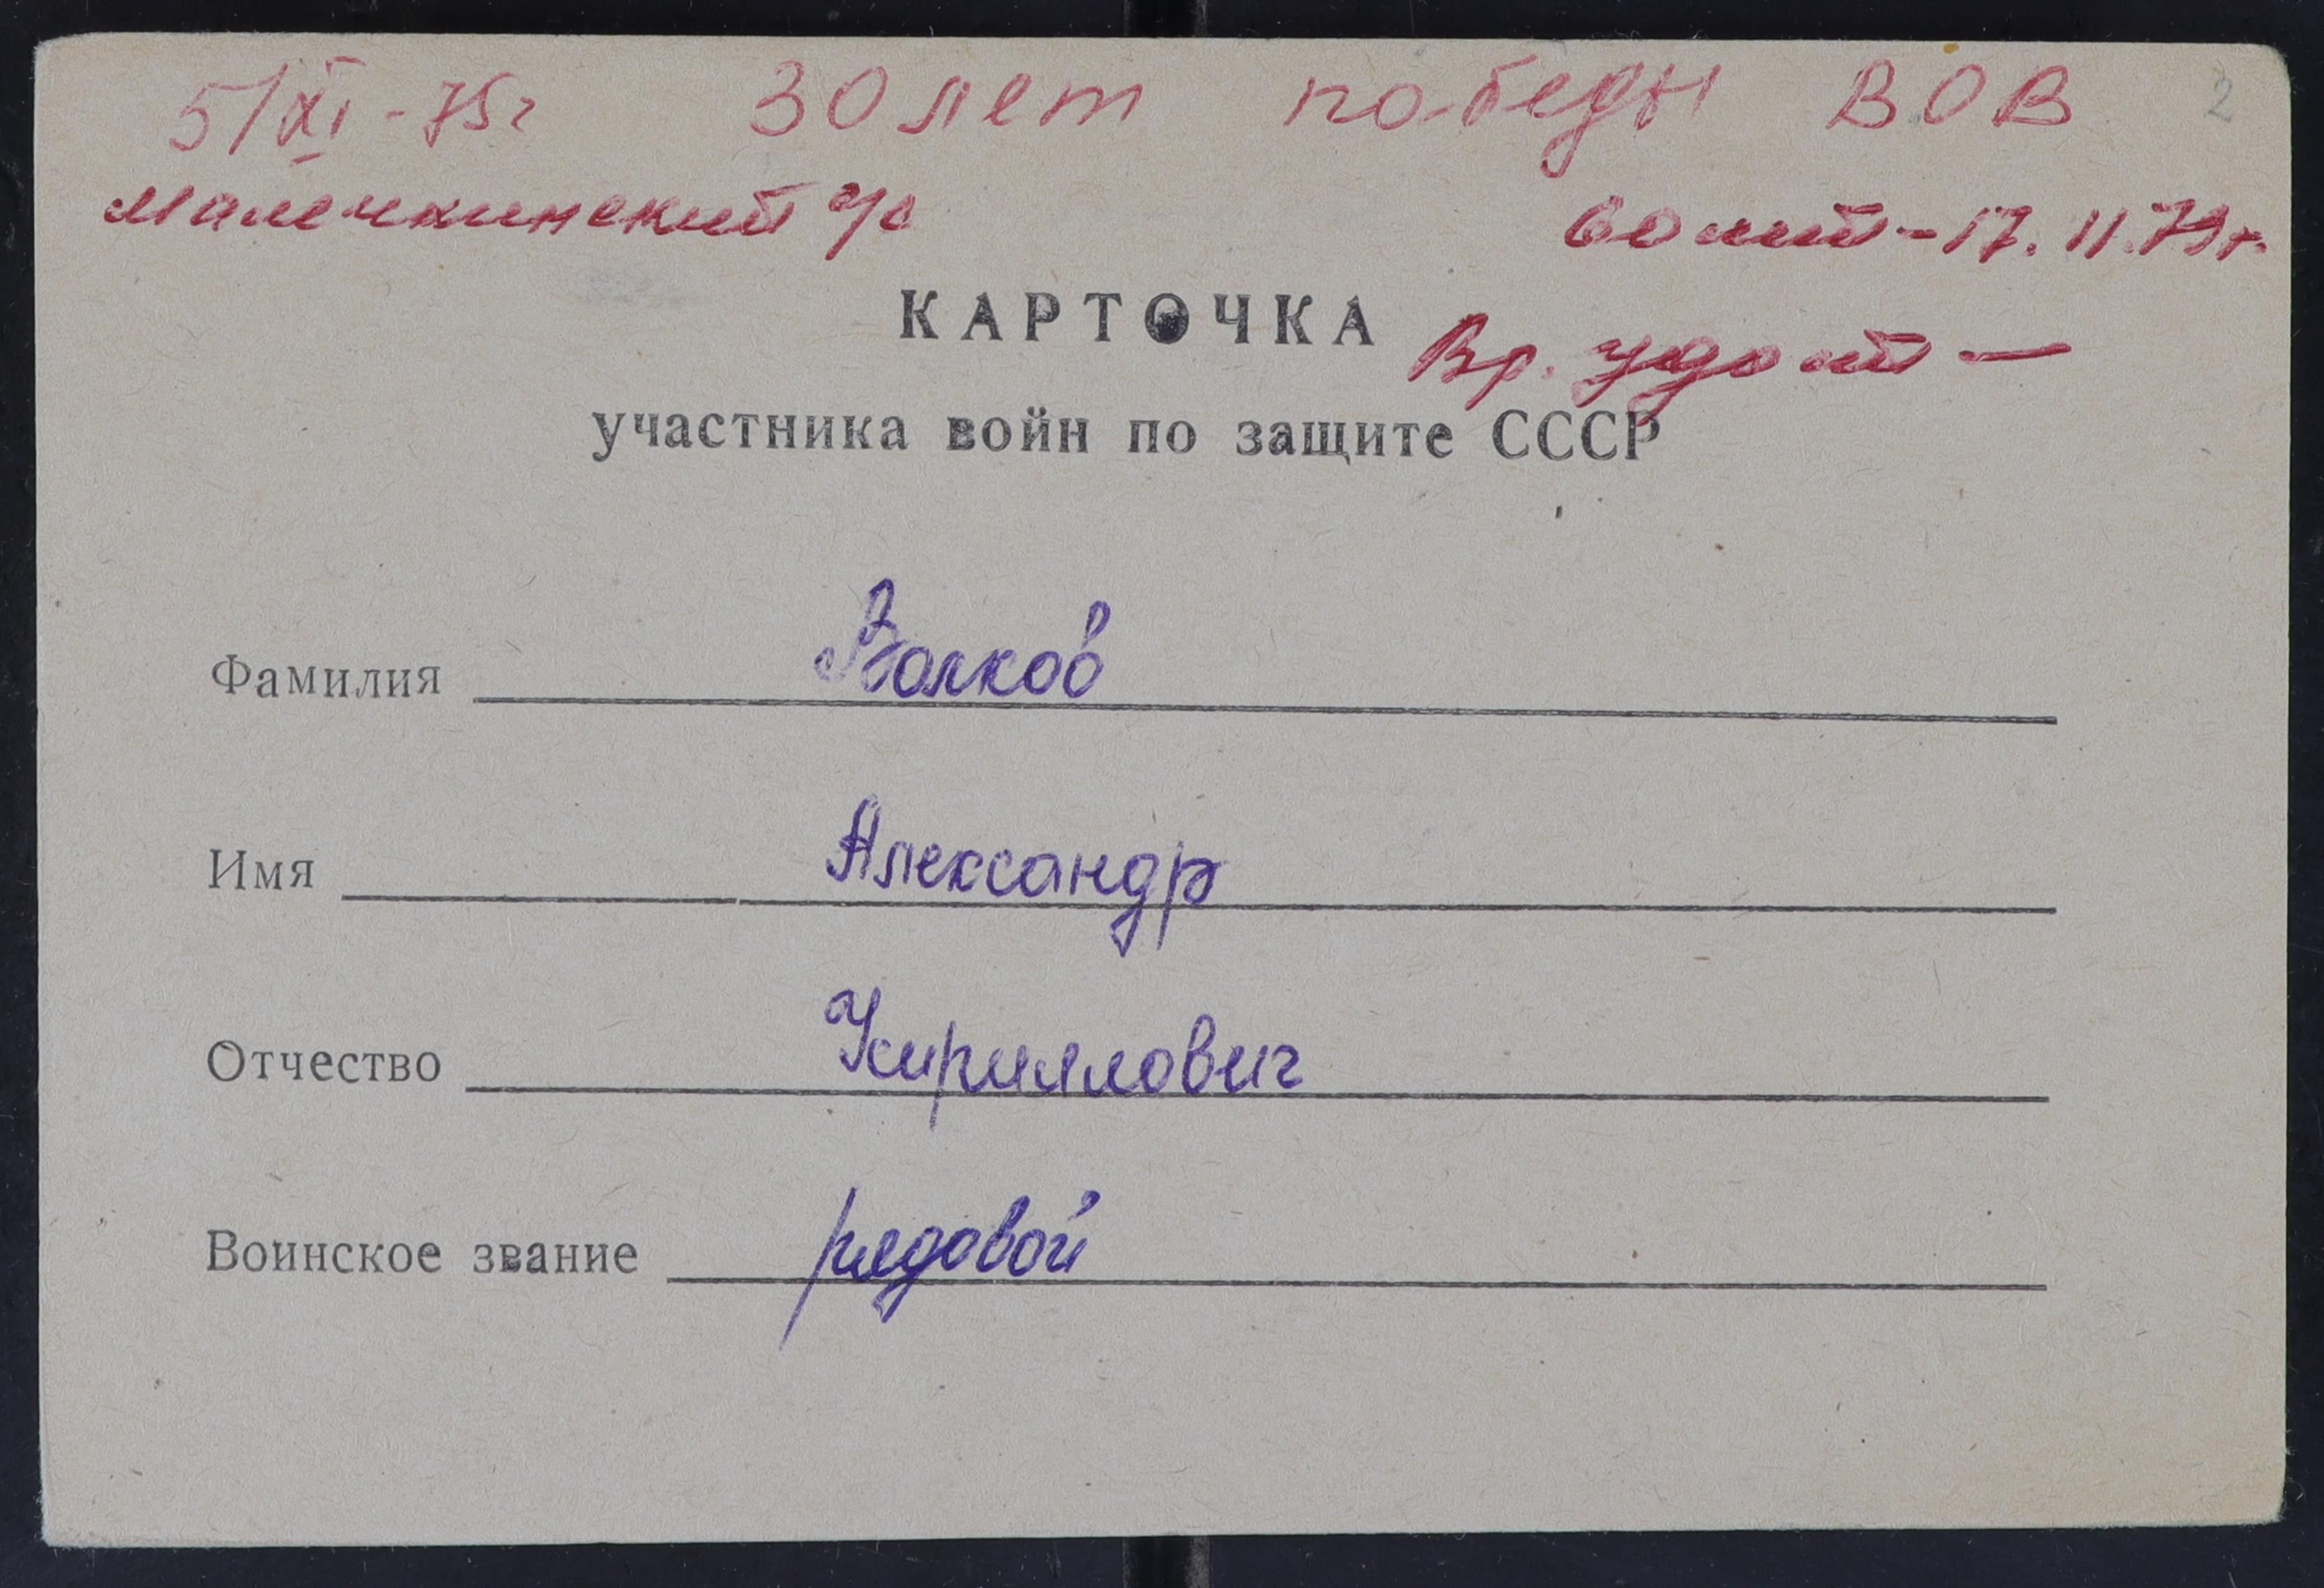 5/XI-75г 30 лет победы ВОВ 2
Малечкинский с/с 60 лет - 17.11.79г.
КАРТОЧКА
Вр. удост -
участника войн по защите СССР
Фамилия Волков
Имя Александр
Отчество Кириллович
Воинское звание рядовой